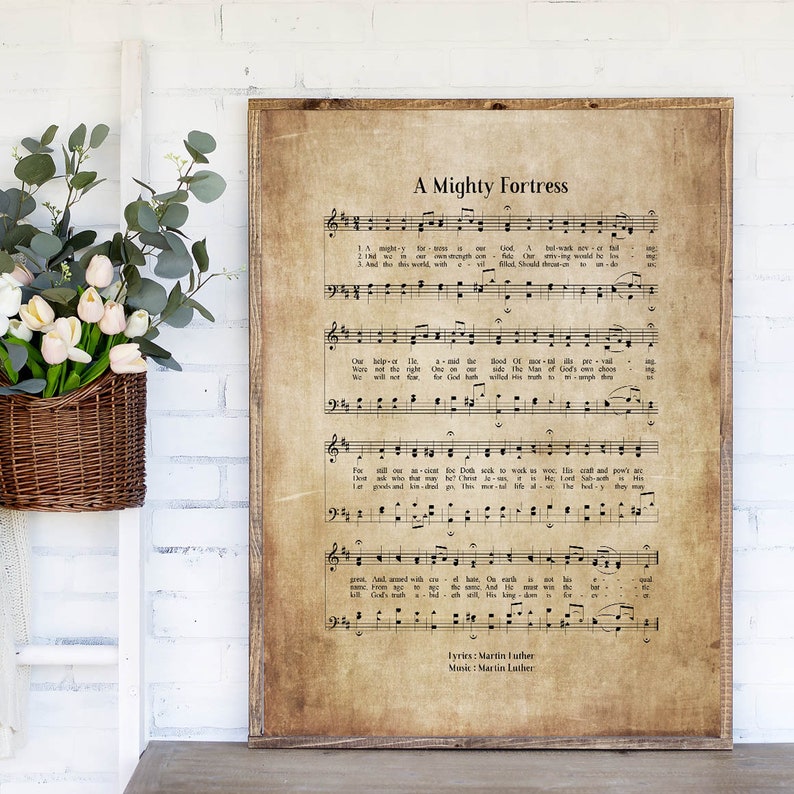 A Mighty Fortress
1. A might-y for-tress is our God, A bul-wark nev-er fail - ing;
2. Did we in our own strength con - fide Our striving would be los - ing;
3. And tho this world, with e-vil filled, Should threat-en to un-do us;
Our help-er He, a-mid the flood Of mor-tal ills pre-vail - ing.
Were not the right One on our side The Man of God's own choos - ing.
We will not fear, for God hath willed His truth to tri-umph thru us
For still our an-cient foe Doth seek to work us woe; His craft and pow'r are
Dost ask who that may be? Christ Je-sus, it is He; Lord Sab-aoth is His
Let goods and kin-dred go, This mor-tal life al-so; The bod-y they may
great, And, armed with cru-el hate, On earth is not his e - qual
name, From age to age the same, And He must win the bat - tle
kill: God's truth a-bid-eth still, His king-dom is for-ev - er.
Lyrics : Martin Luther
Music : Martin Luther